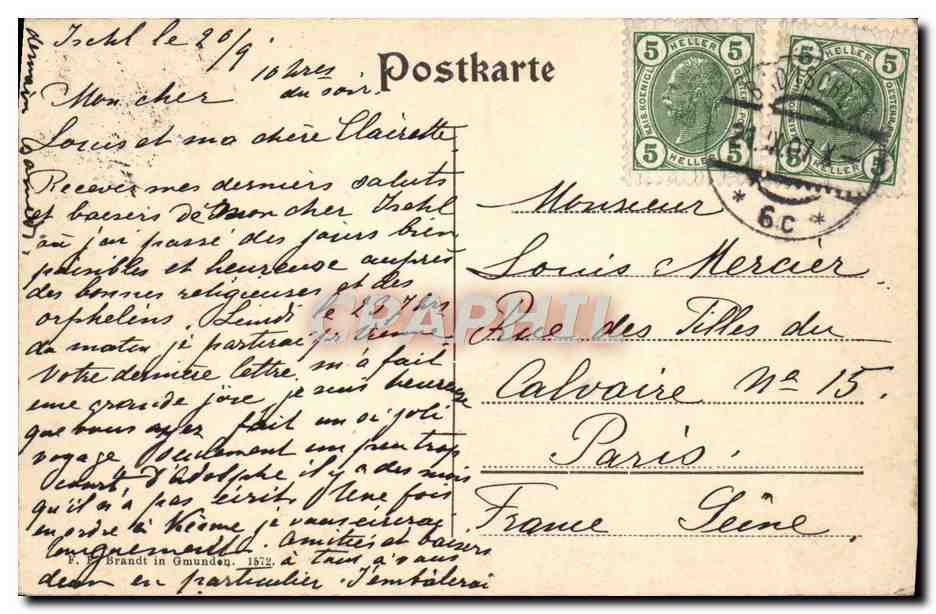 Ischl le 20/9
10 hres
du soir.
Postkarte
Mon cher
Louis et ma chère Clairette
Recevez mes derniers saluts
et baisers de mon cher Ischl
où j'ai passé des jours bien
paisibles et heureuse auprès
des bonnes religieuses et des
orphelins. Lundi le 23 7 hrs
du matin je partirai pr Vienne
Votre dernière lettre m'a fait
une grande joie je suis heureuse
que vous ayez fait un si joli
voyage seulement un peu trop
court. D'Adolphe il y a des mois
qu'il n'a pas écrit. Une fois
en ordre à Vienne je vous écrirai
longuement. Amitiés et baisers
à tous
deux en particulier. J'emballerai
demain samedi.
F. E. Brandt in Gmunden. 1572.
5 HELLER 5
KAIS. KOENIGL.
5 HELLER 5
5 HELLER 5
5 HELLER 5
21 IX 07
* 6c *
Monsieur
Louis Mercier
Rue des Filles du
Calvaire No 15
Paris.
France Seine.
CPAPHIL